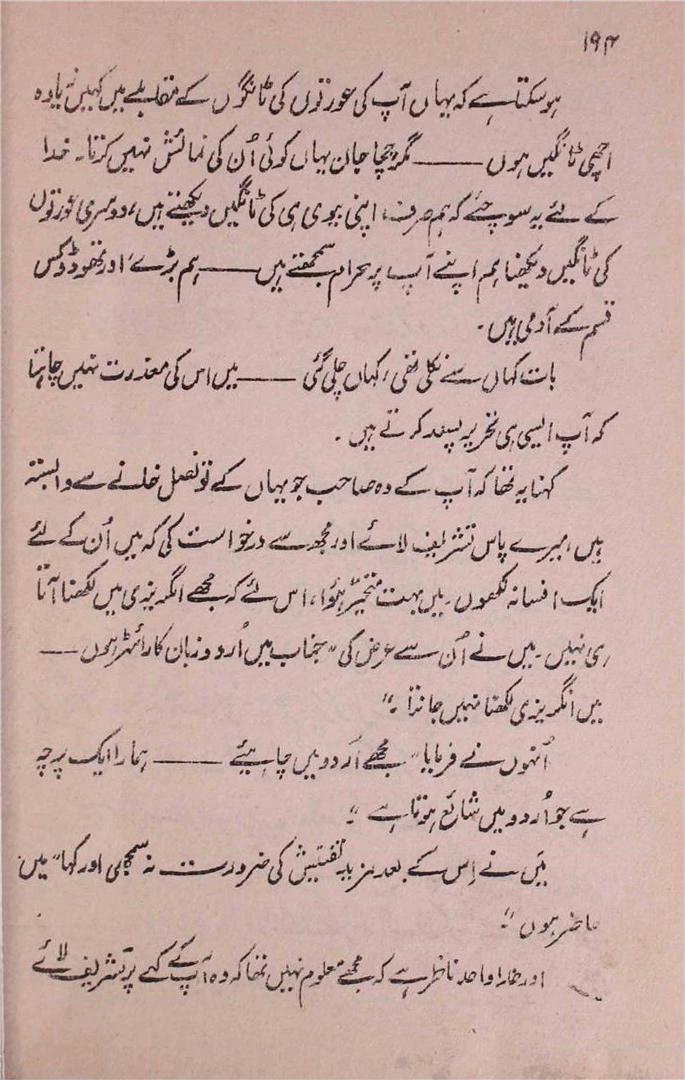 ۱۹۴
ہوسکتا ہے کہ یہاں آپ کی عورتوں کی ٹانگوں کے مقابلے میں کہیں زیادہ
اچھی ٹانگیں ہوں ـــــ مگر چچا جان یہاں کوئی اُن کی نمائش نہیں کرتا۔ خدا
کے لئے یہ سوچئے کہ ہم صرف اپنی بیوی ہی کی ٹانگیں دیکھتے ہیں، دوسری عورتوں
کی ٹانگیں دیکھنا ہم اپنے آپ پر حرام سمجھتے ہیں ـــــ ہم بڑے اور تھوڈوکس
قسم کے آدمی ہیں۔
بات کہاں سے نکلی تھی، کہاں چلی گئی ـــــ میں اس کی معذرت نہیں چاہتا
کہ آپ ایسی ہی تحریر پسند کرتے ہیں۔
کہنا یہ تھا کہ آپ کے وہ صاحب جو یہاں کے قونصل خانے سے وابستہ
ہیں، میرے پاس تشریف لائے اور مجھ سے درخواست کی کہ میں اُن کے لئے
ایک افسانہ لکھوں۔ میں بہت متحیّر ہؤا، اس لئے کہ مجھے انگریزی میں لکھنا آتا
ہی نہیں۔ میں نے اُن سے عرض کی ”جناب میں اُردو زبان کا رائٹر ہوں ـــــ
میں انگریزی لکھنا نہیں جانتا۔“
اُنہوں نے فرمایا ”مجھے اُردو میں چاہیئے ـــــ ہمارا ایک پرچہ
ہے جو اُردو میں شائع ہوتا ہے“۔
میں نے اِس کے بعد مزید تفتیش کی ضرورت نہ سمجھی اور کہا ”میں
حاضر ہوں“۔
اور خدا واحد ناظر ہے کہ مجھے معلوم نہیں تھا کہ وہ آپ کے کہے پر تشریف لائے